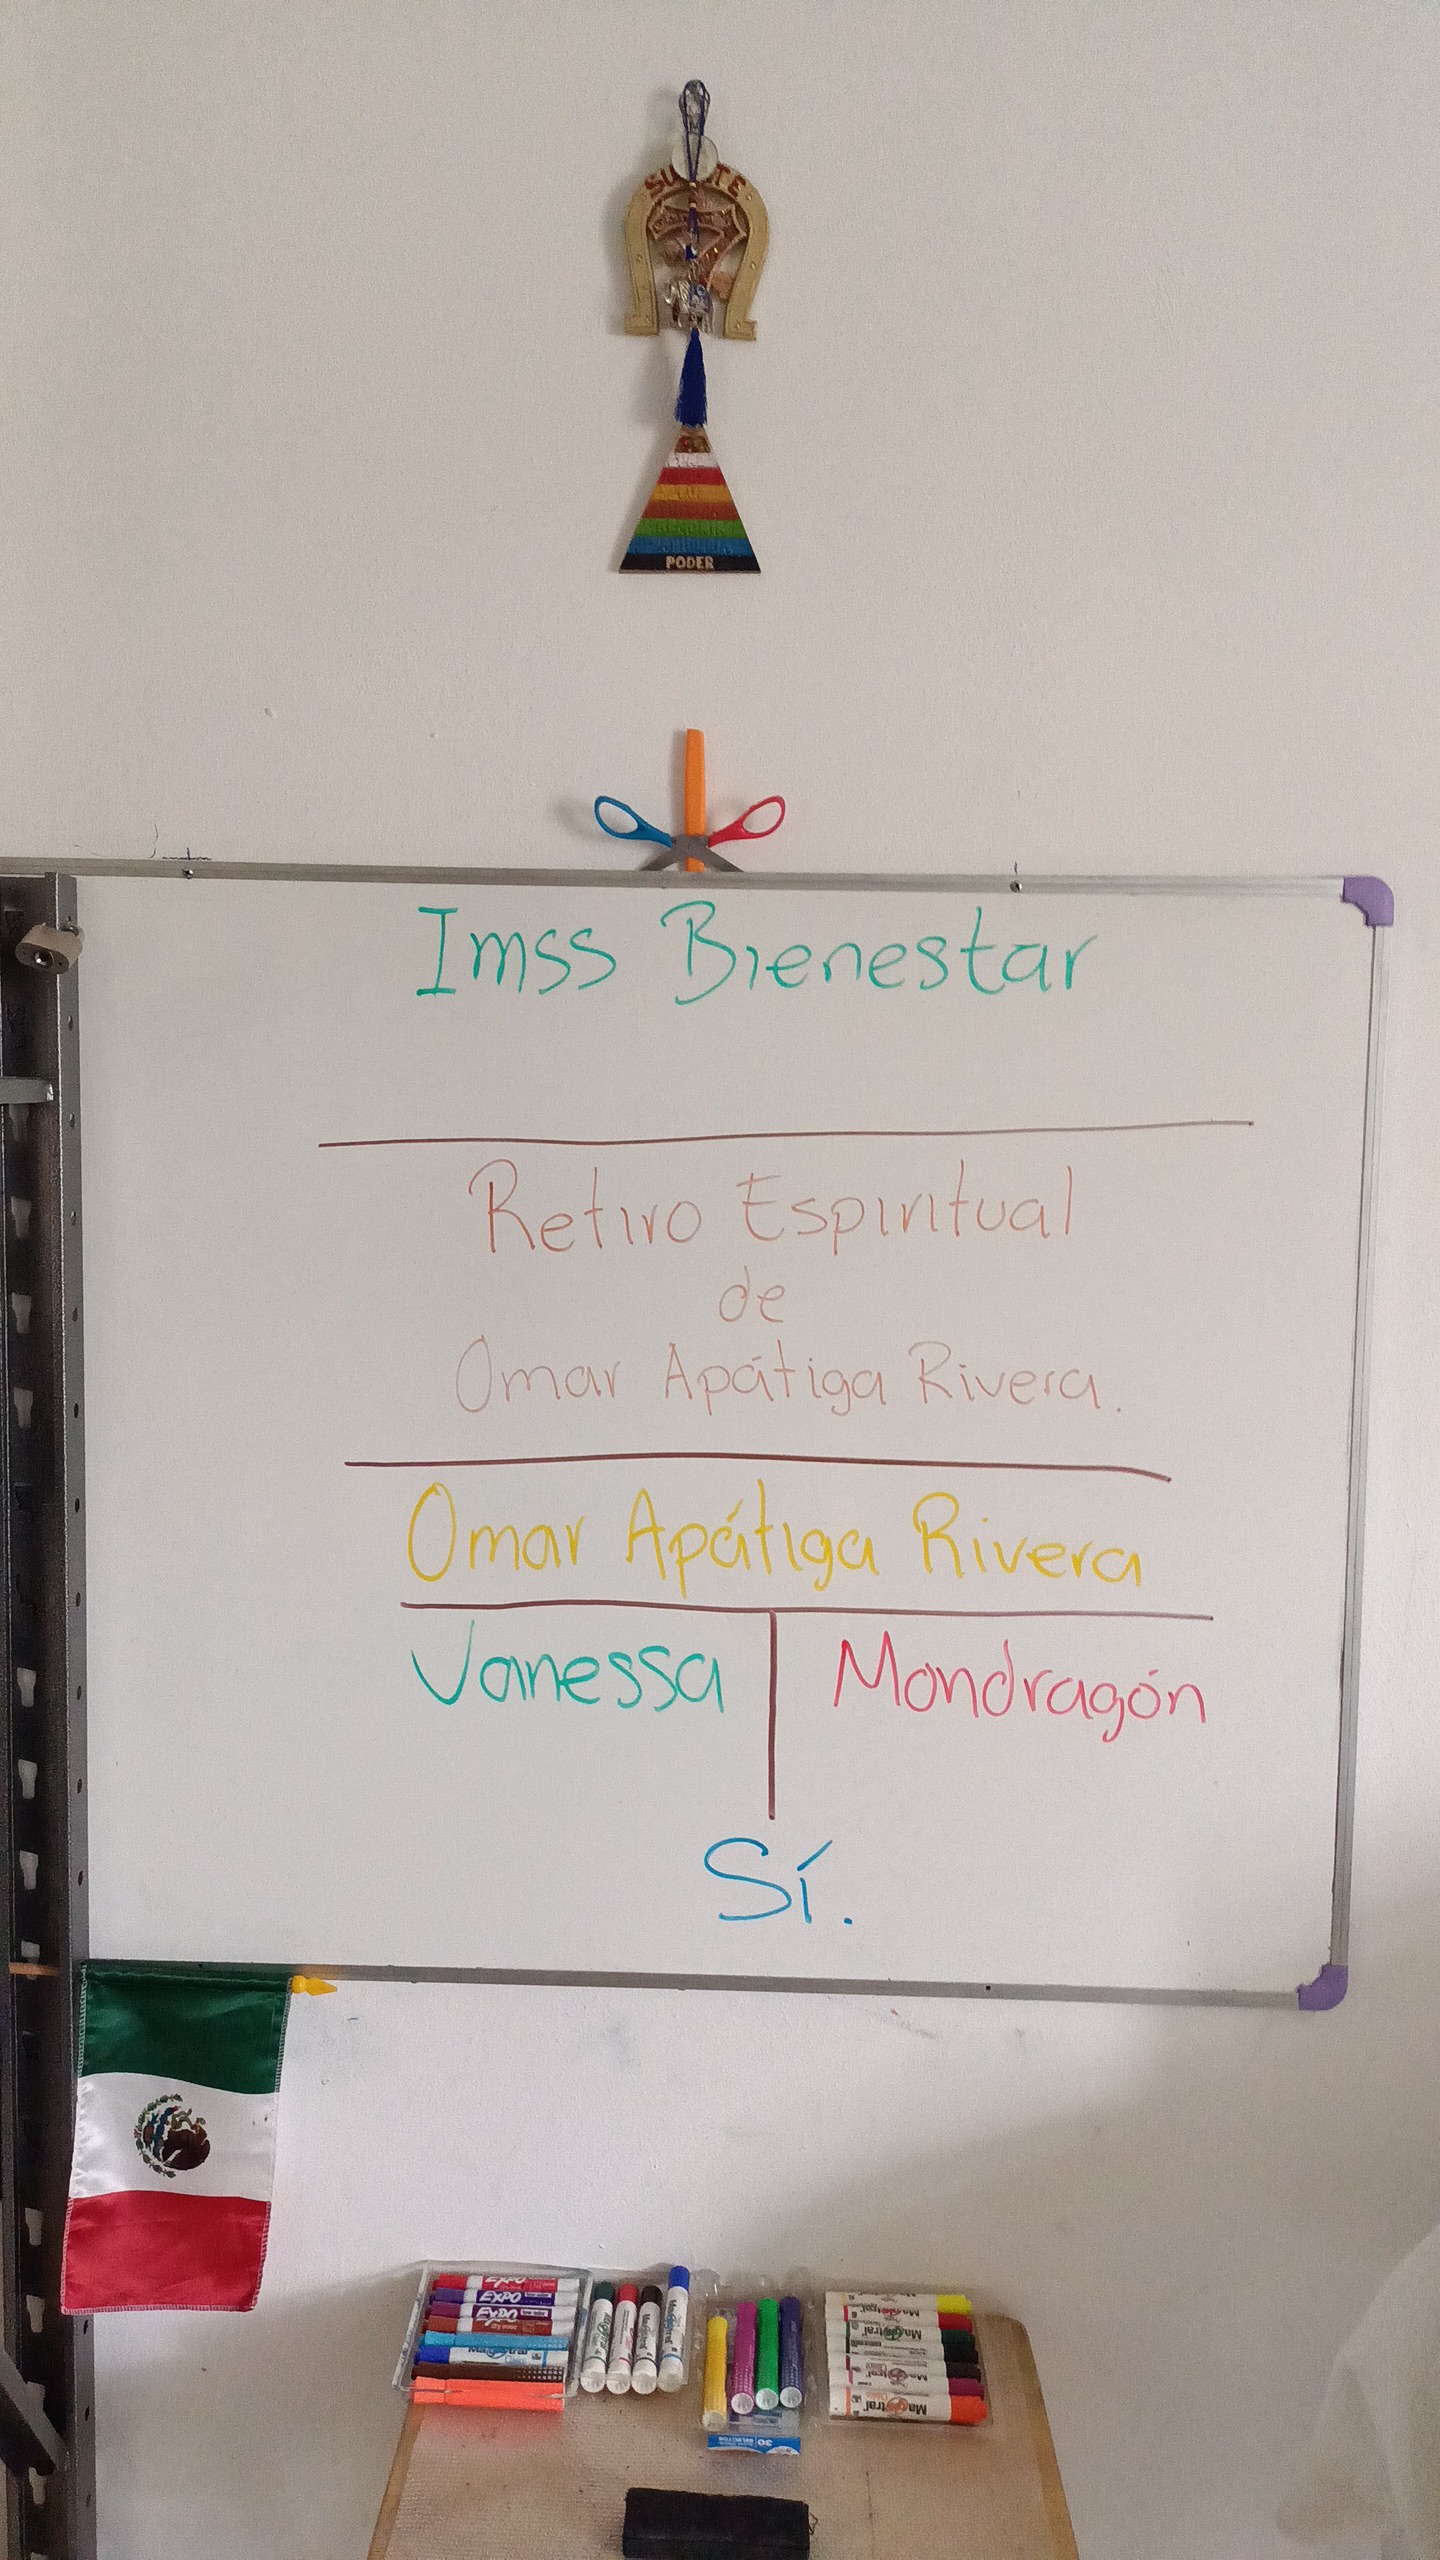 SUERTE
PODER
Imss Bienestar
Retiro Espiritual
de
Omar Apátiga Rivera.
Omar Apátiga Rivera
Vanessa Mondragón
Sí.
EXPO
EXPO
EXPO
Magistral
Magistral
Magistral
Magistral
30